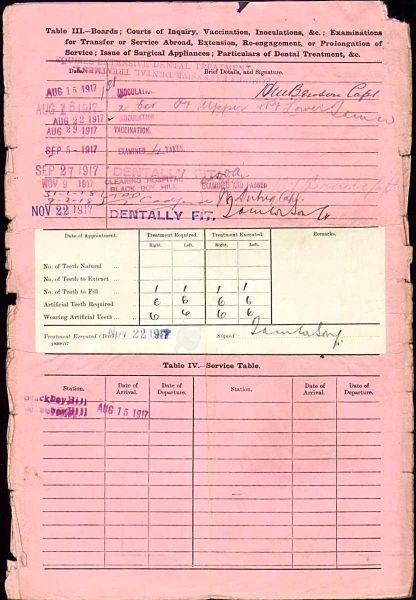 Table III.—Boards; Courts of Inquiry, Vaccination, Inoculations, &c.; Examinations
for Transfer or Service Abroad, Extension, Re-engagement, or Prolongation of
Service; Issue of Surgical Appliances; Particulars of Dental Treatment, &c.
REQUIRES EXTENSIVE DENTAL TREATMENT
Date Brief Details, and Signature.
AUG 15 1917 INOCULATION Capt
AUG 16 1917 2 Upper + Pt Lower
AUG 22 1917 INOCULATION
AUG 29 1917 VACCINATION.
SEP 5 - 1917 EXAMINED TAKEN.
SEP 27 1917 DENTALLY FIT
NOV 9 1917 CLEARING HOSPITAL EXAMINED AND PASSED
BLACK BOY HILL
9-2-18
NOV 22 1917 DENTALLY FIT.
Date of Appointment. Treatment Required. Treatment Executed. Remarks.
Right. Left. Right. Left.
No. of Teeth Natural
No. of Teeth to Extract
No. of Teeth to Fill 1 1 1 1
Artificial Teeth Required 6 6 6 6
Wearing Artificial Teeth 6 6 6 6
Treatment Executed (Date) NOV 22 1917 Signed
Table IV.—Service Table.
Station. Date of Arrival. Date of Departure. Station. Date of Arrival. Date of Departure.
Blackboy Hill AUG 15 1917